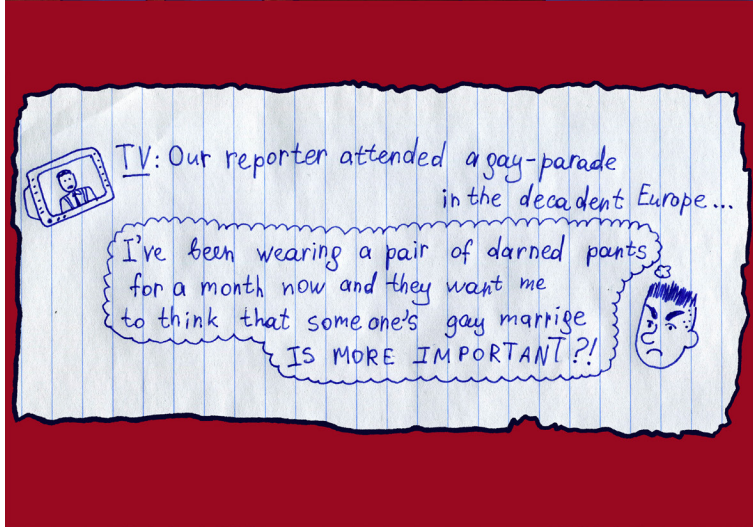 TV: Our reporter attended a gay-parade
in the decadent Europe...
I've been wearing a pair of darned pants
for a month now and they want me
to think that someone's gay marrige
IS MORE IMPORTANT?!